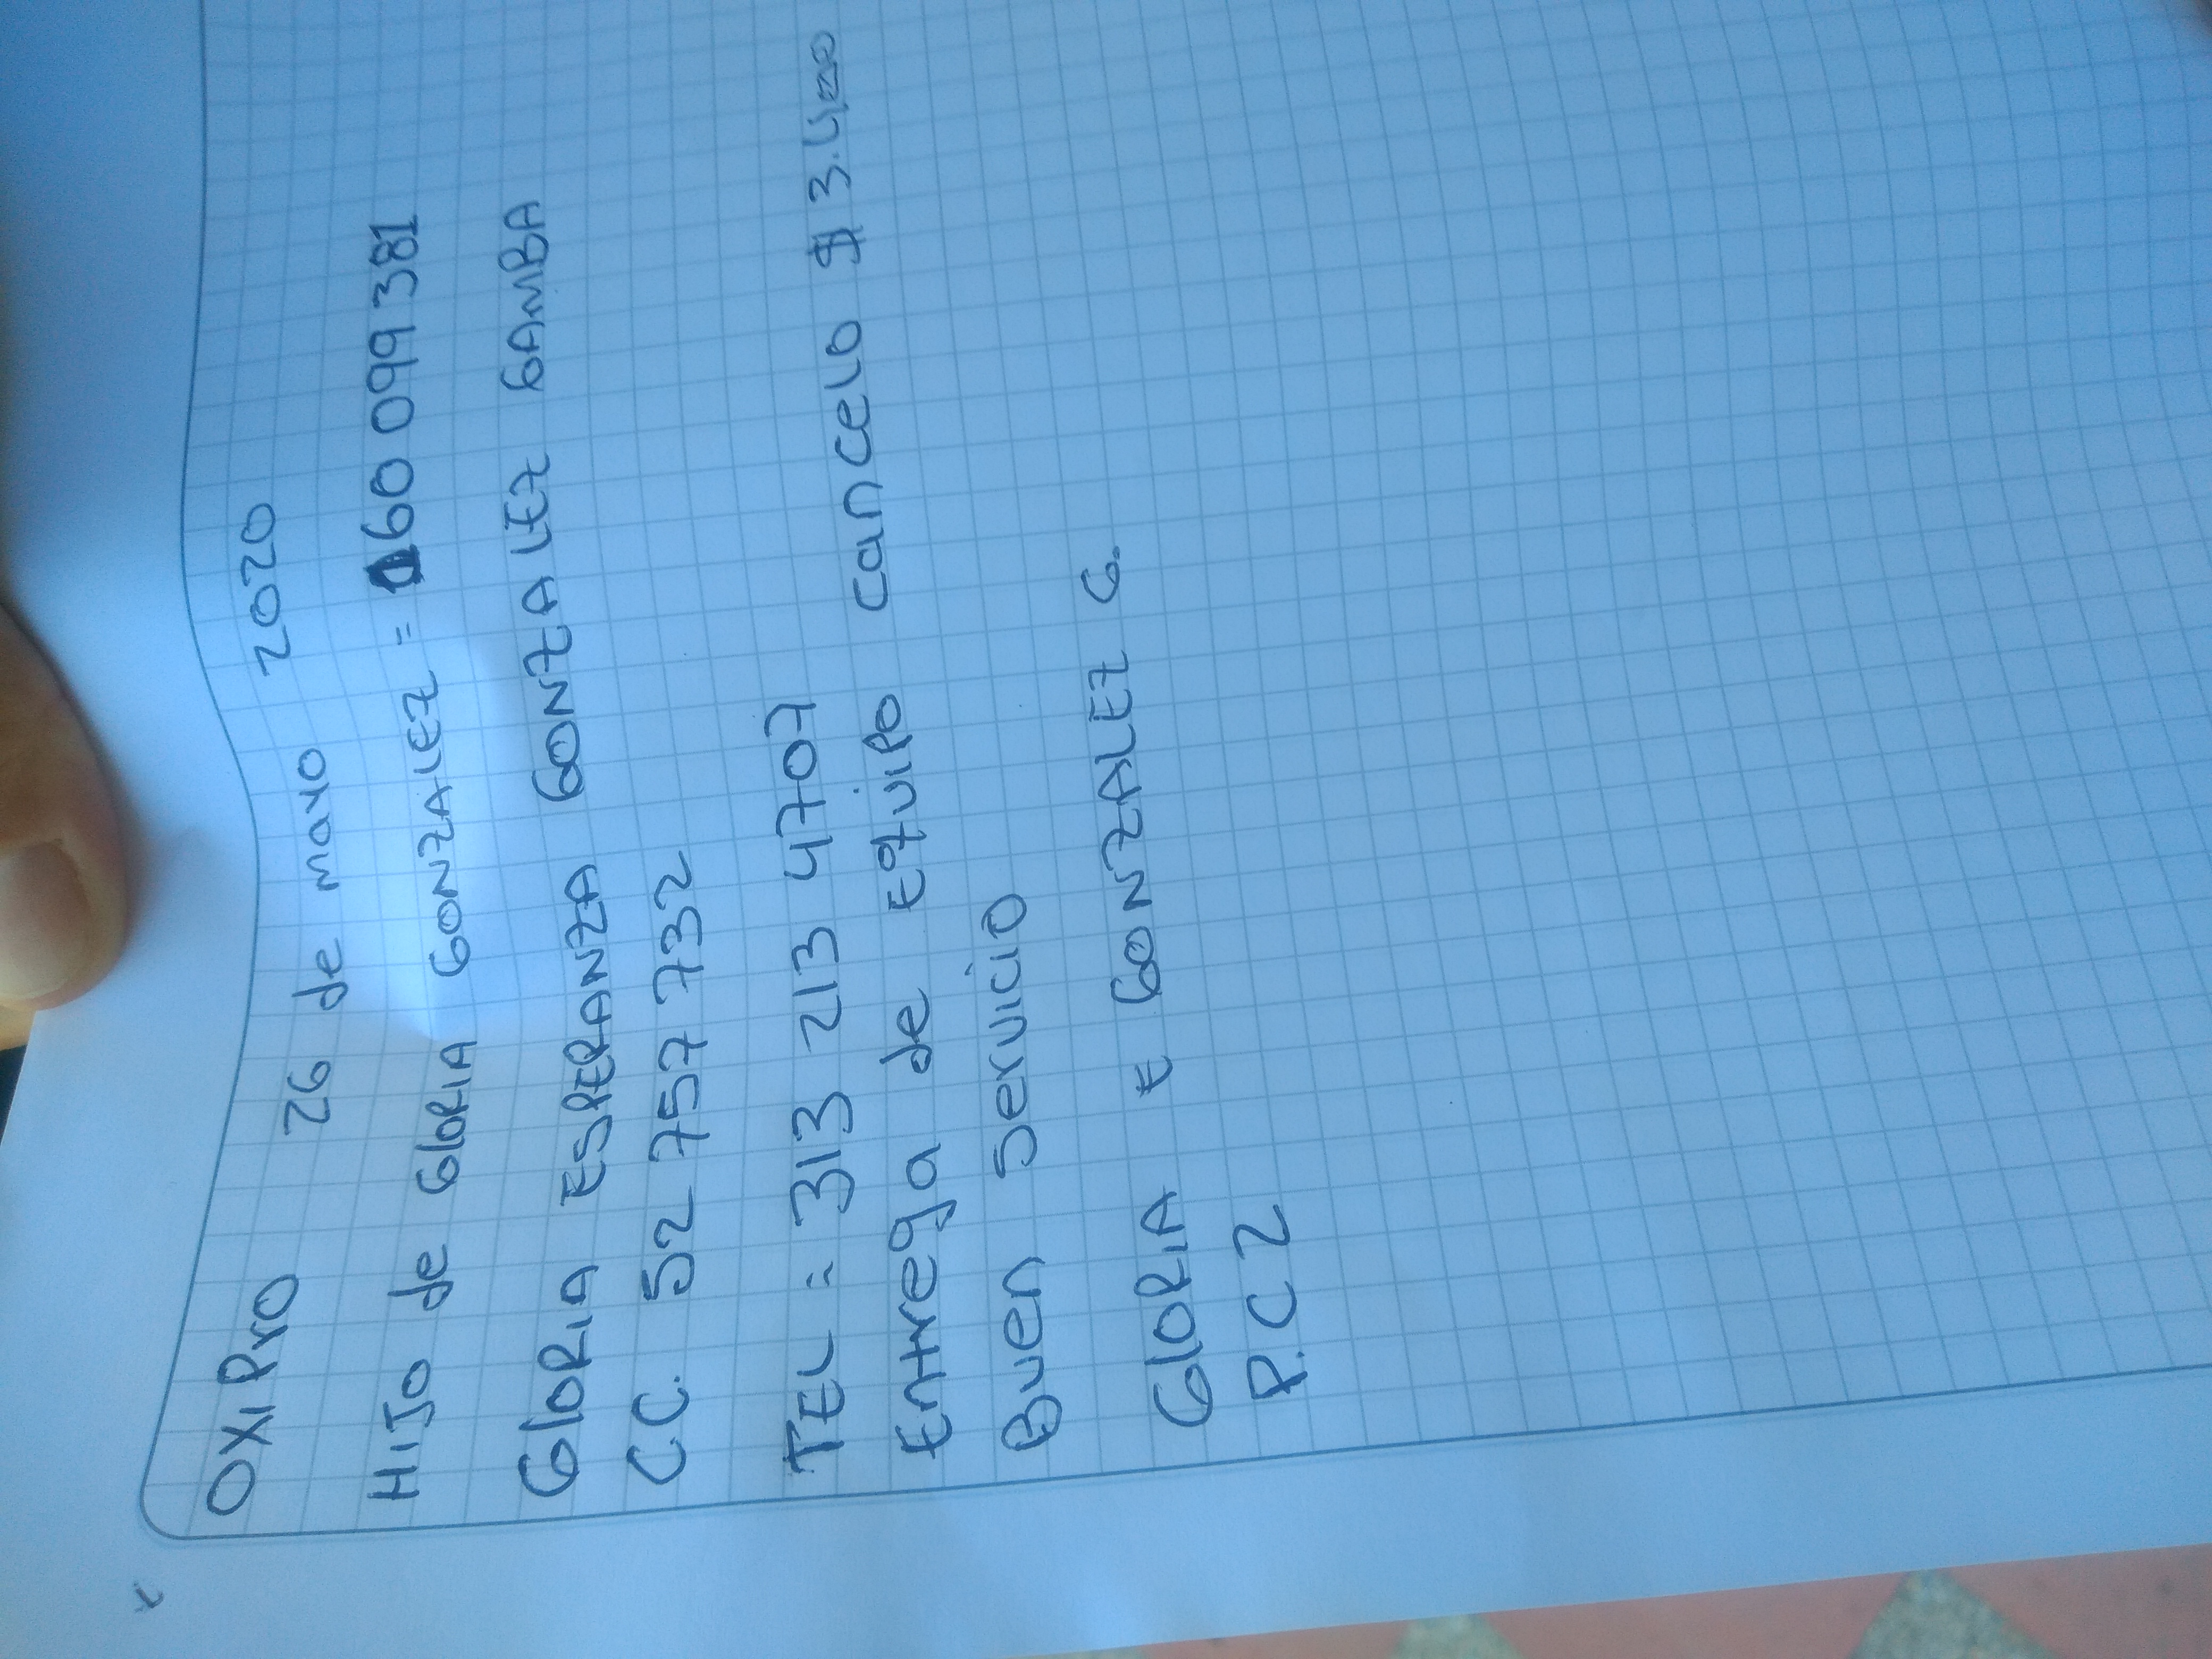 OXIPrO 26 de mayo 2020
HIJO de GlORIA GONZALEZ = 160099381
GlORIA ESPERANZA GONZALEZ GAMBA
C.C. 52 757 732
TEL = 313 213 4707
Entrega de Equipo cancelo $ 3.400
Buen Servicio
GlORIA E GONZALEZ G.
P.C 2